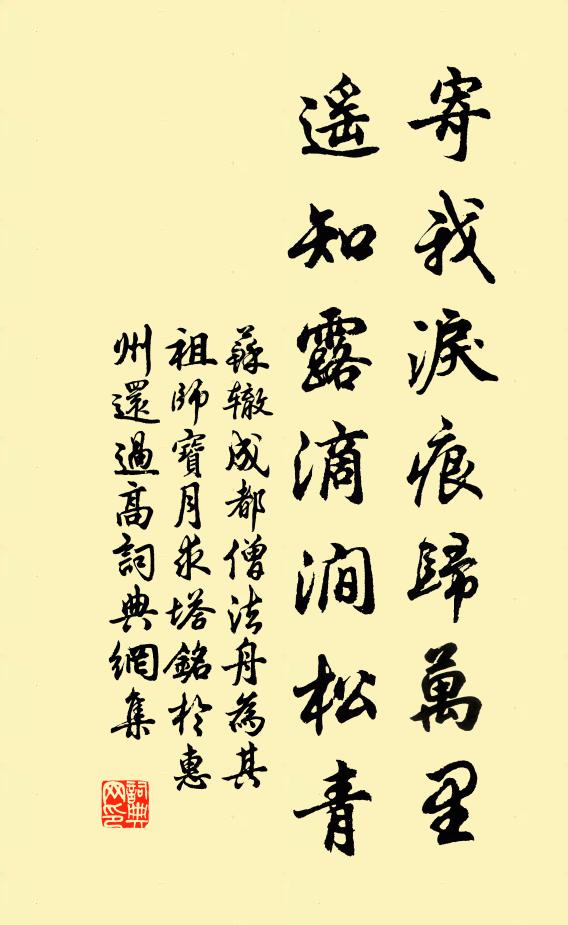 寄我淚痕歸萬里
遥知露滴澗松青
蘇轍成都僧法舟為其
祖師寶月求塔銘於惠
州還過高詞典網集
詞典
网印